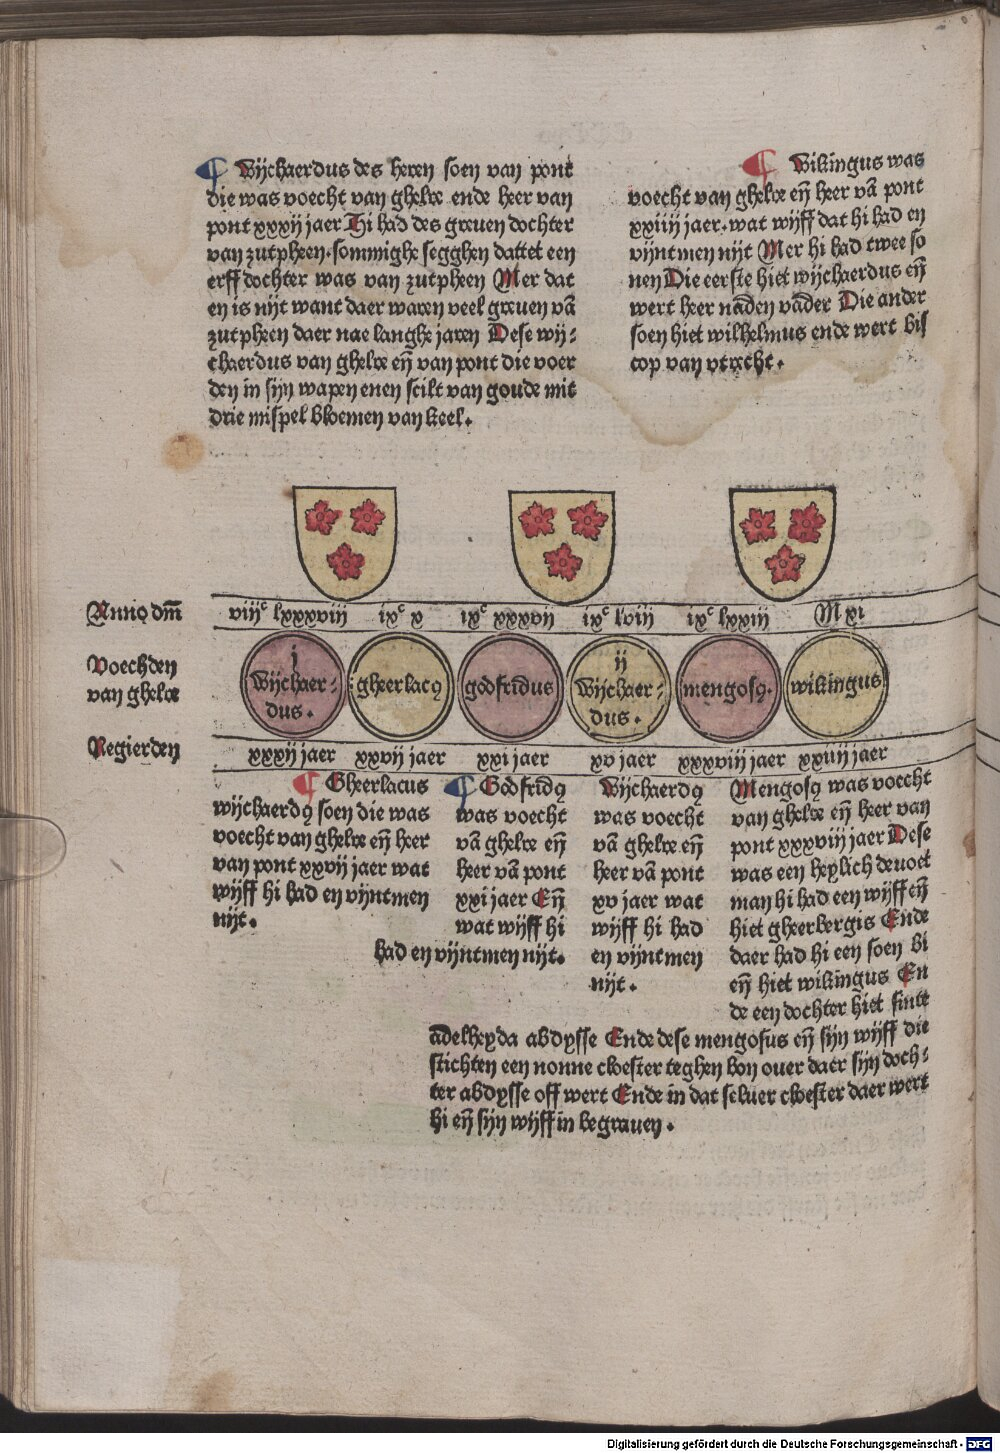 ¶ Wijchaerdus des heren soen van pont
die was voecht van ghelre ende heer van
pont xxxij jaer Hi had des grauen dochter
van zutpheen. sommighe segghen dattet een
erff dochter was van zutpheen Mer dat
en is nijt want daer waren veel grauen vā
zutpheen daer nae langhe jaren Dese wij-
chaerdus van ghelre eñ van pont die voer
den in sijn wapen enen scilt van goude mit
drie mispel bloemen van keel.
¶ Wikingus was
voecht van ghelre eñ heer vā pont
xxiiij jaer. wat wijff dat hi had en
vijnt men nijt Mer hi had twee so
nen Die eerste hiet wijchaerdus eñ
wert heer nāden vāder Die ander
soen hiet wilhelmus ende wert bis
cop van vtrecht.
Anno dm̄ viijᶜ lxxxviij ixᶜ x ixᶜ xxxvij ixᶜ lviij ixᶜ lxxiij M xi
Voechden
van ghelre
j
Wijchaer-
dus.
gheerlacꝯ
godfridus
ij
Wijchaer-
dus.
mengosꝯ.
wikingus
Regierden xxxij jaer xxvij jaer xxi jaer xv jaer xxxviij jaer xxiiij jaer
¶ Gheerlacus
wijchaerdꝯ soen die was
voecht van ghelre eñ heer
van pont xxvij jaer wat
wijff hi had en vijnt men
nijt.
¶ Godfridꝯ
was voecht
vā ghelre eñ
heer vā pont
xxi jaer Eñ
wat wijff hi
had en vijnt men nijt.
Wijchaerdꝯ
was voecht
vā ghelre eñ
heer vā pont
xv jaer wat
wijff hi had
en vijnt men
nijt.
Mengosꝯ was voecht
van ghelre eñ heer van
pont xxxviij jaer Dese
was een heylich deuoet
man hi had een wijff eñ
hiet gheerbergis Ende
daer had hi een soen bi
eñ hiet wikingus En
de een dochter hiet sinte
adelheyda abdysse Ende dese mengosus eñ sijn wijff die
stichten een nonne cloester teghen bon ouer daer sijn doch-
ter abdysse off wert Ende in dat seluer cloester daer wert
hi eñ sijn wijff in begrauen.
Digitalisierung gefördert durch die Deutsche Forschungsgemeinschaft - DFG